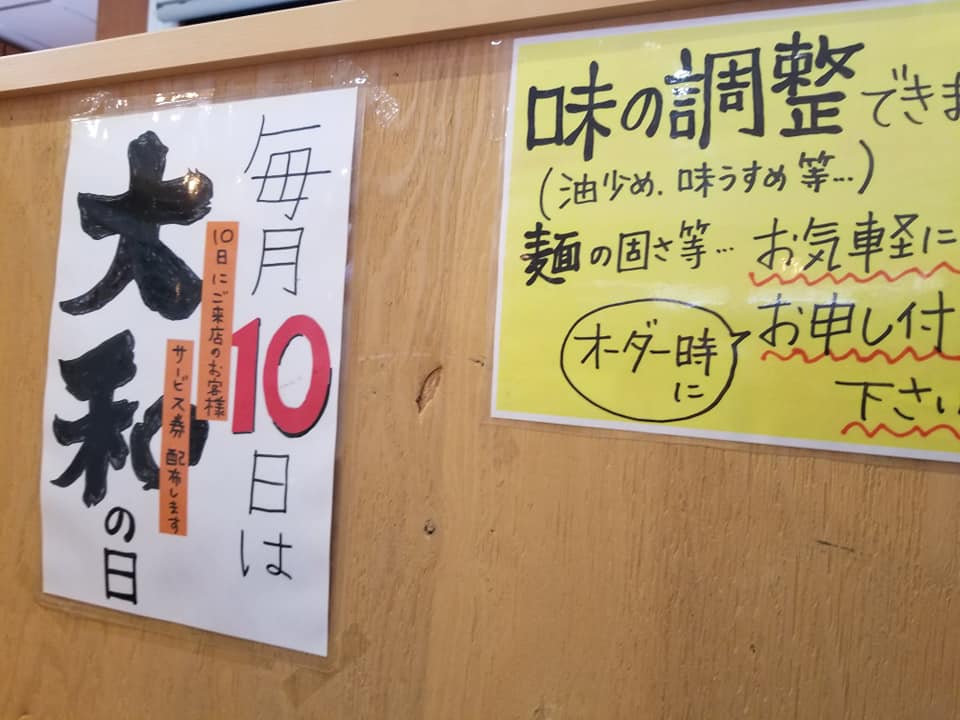 毎月10日は
10日にご来店のお客様
サービス券配布します
大和の日
味の調整できま
(油少め、味うすめ等…)
麺の固さ等…お気軽に
オーダー時に
お申し付
下さい